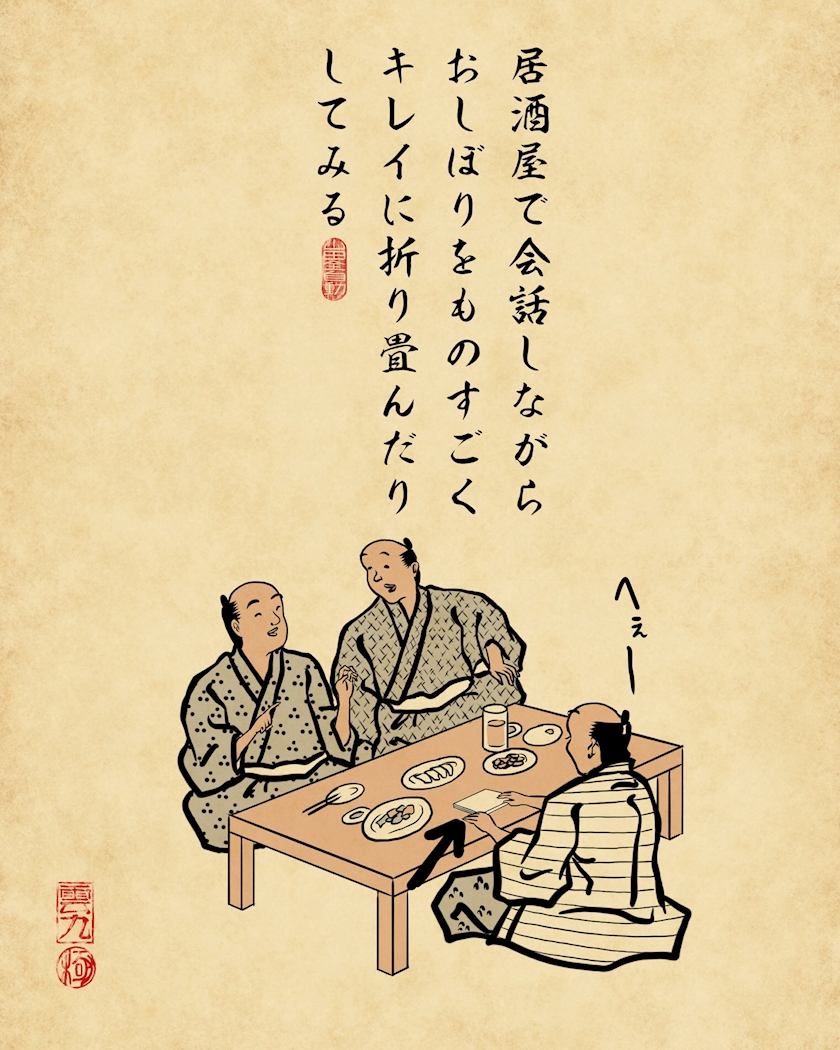 居酒屋で会話しながら
おしぼりをものすごく
キレイに折り畳んだり
してみる
へぇー